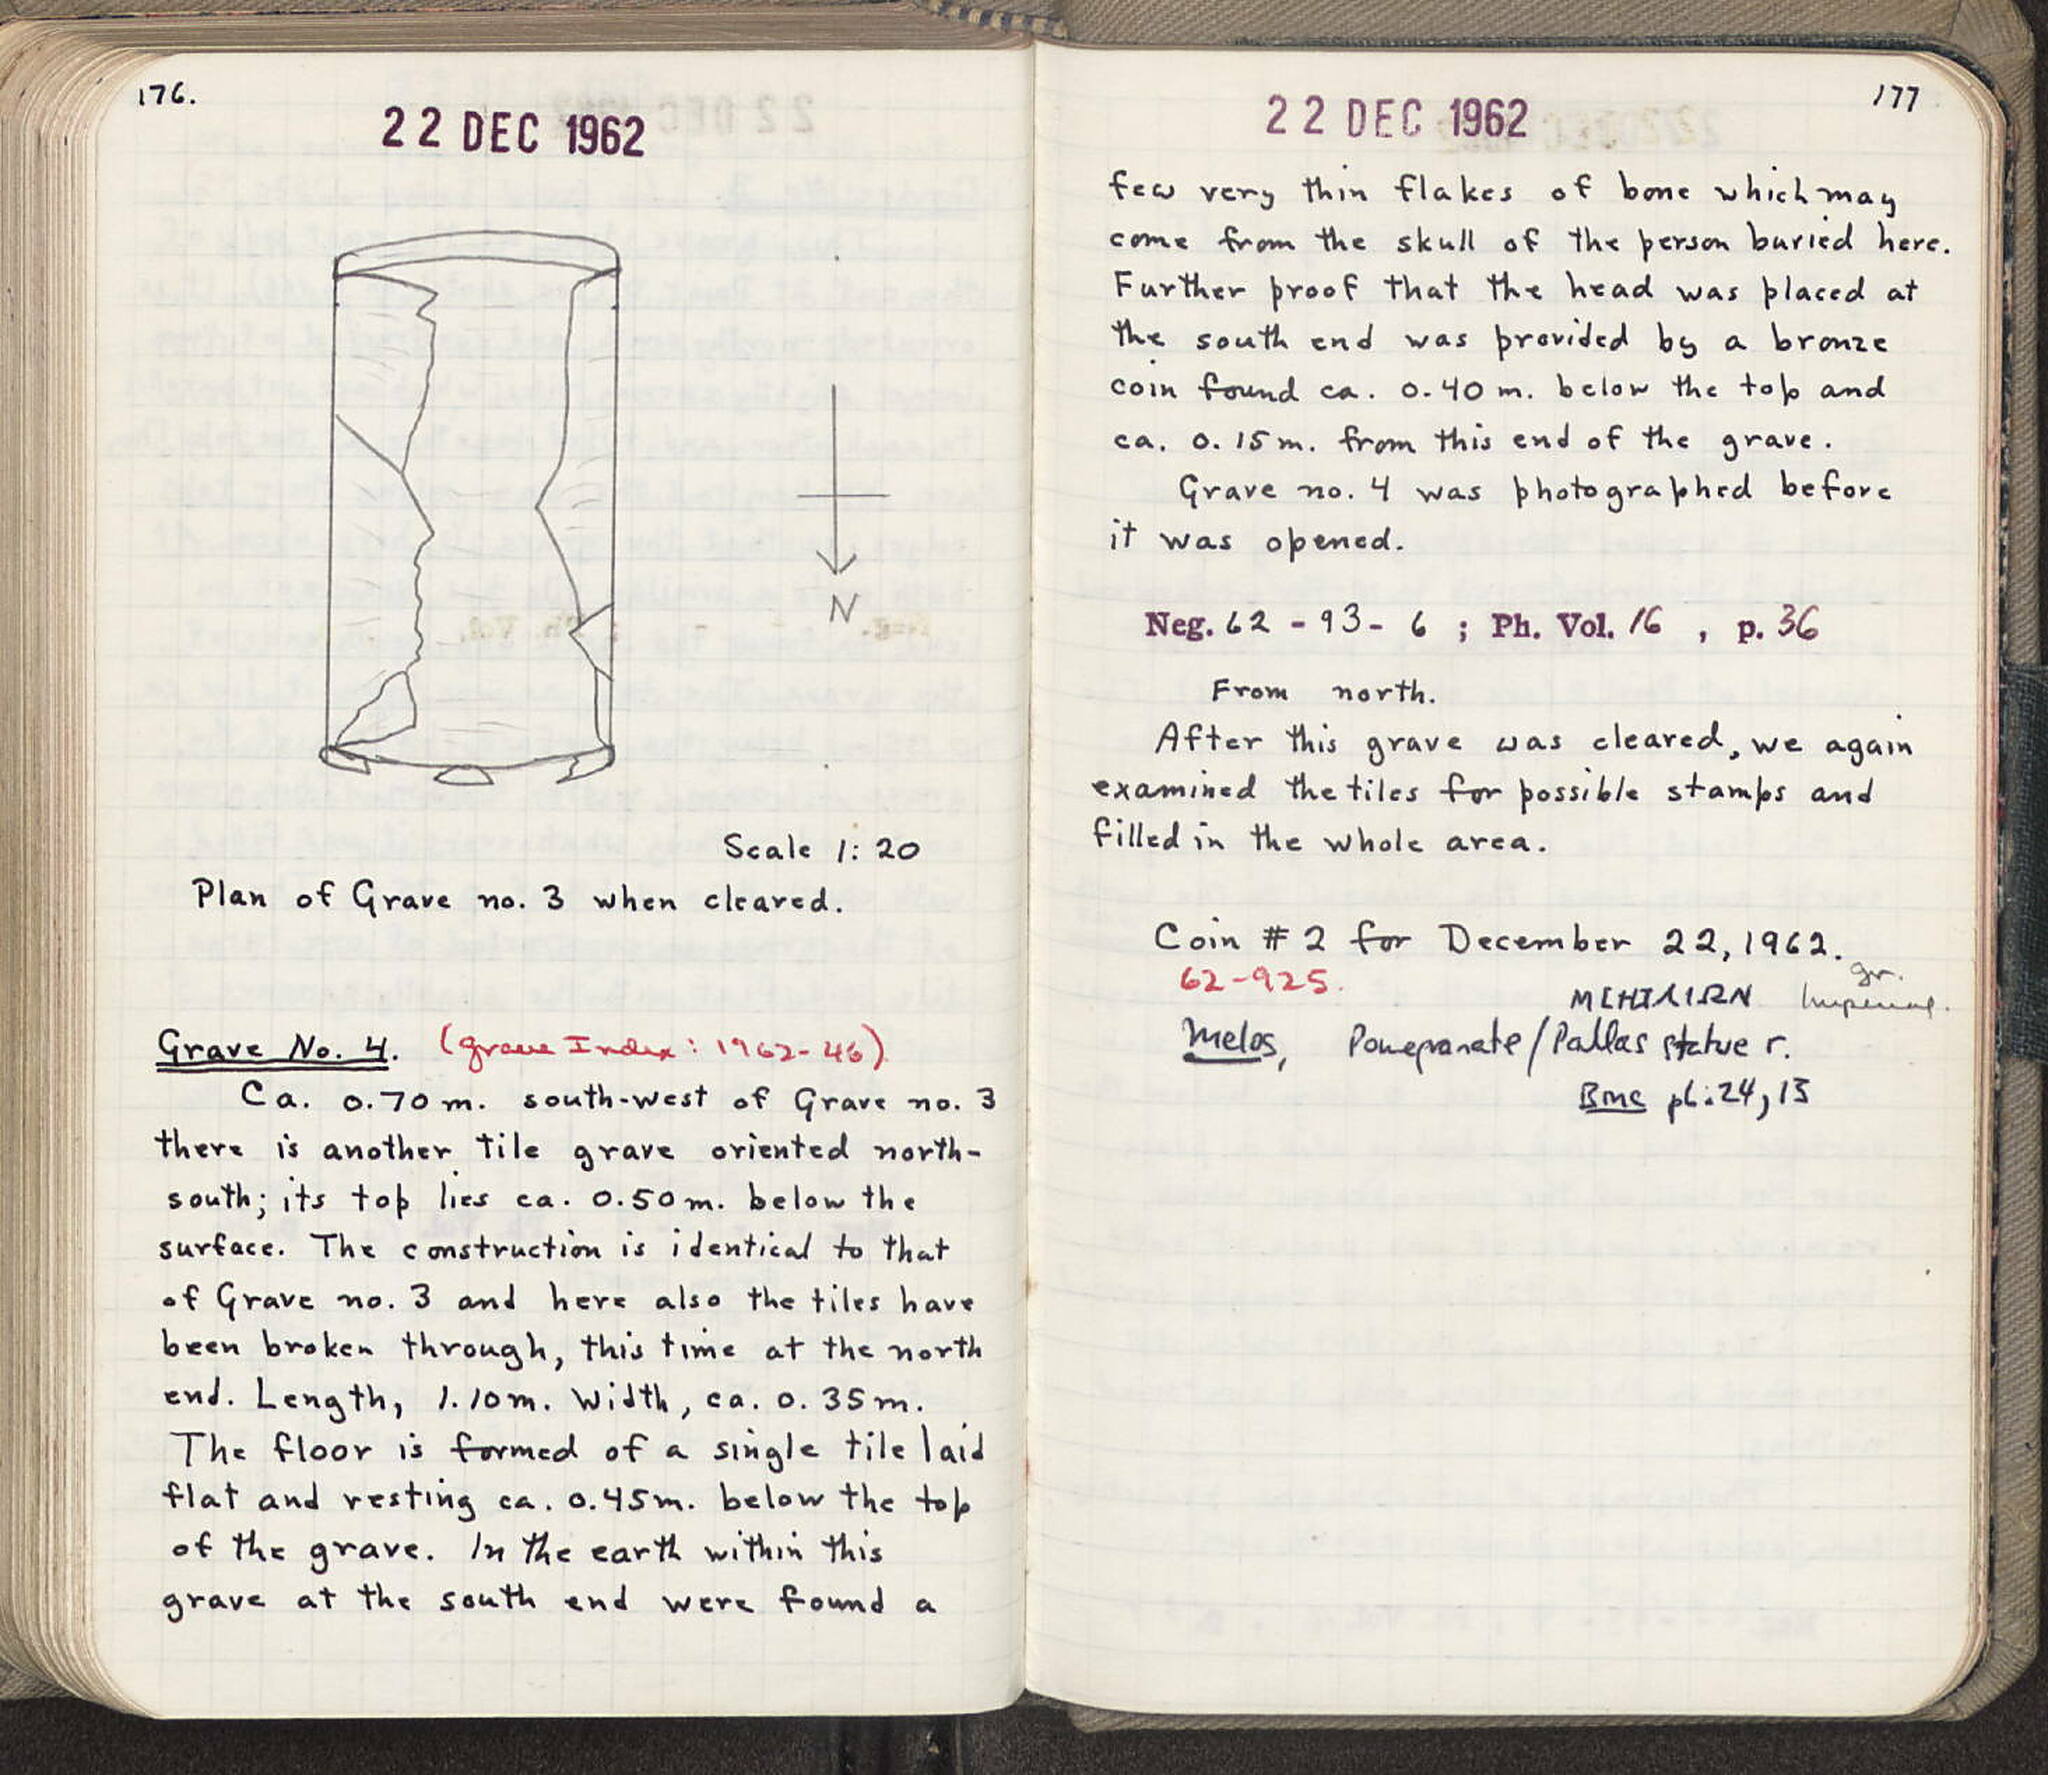 176.
22 DEC 1962
N
Scale 1:20
Plan of Grave no. 3 when cleared.
Grave No. 4. (grave Index: 1962-46)
Ca. 0.70 m. south-west of Grave no. 3
there is another tile grave oriented north-
south; its top lies ca. 0.50 m. below the
surface. The construction is identical to that
of Grave no. 3 and here also the tiles have
been broken through, this time at the north
end. Length, 1.10 m. Width, ca. 0.35 m.
The floor is formed of a single tile laid
flat and resting ca. 0.45 m. below the top
of the grave. In the earth within this
grave at the south end were found a
177
22 DEC 1962
few very thin flakes of bone which may
come from the skull of the person buried here.
Further proof that the head was placed at
the south end was provided by a bronze
coin found ca. 0.40 m. below the top and
ca. 0.15 m. from this end of the grave.
Grave no. 4 was photographed before
it was opened.
Neg. 62 - 93 - 6 ; Ph. Vol. 16 , p. 36
From north.
After this grave was cleared, we again
examined the tiles for possible stamps and
filled in the whole area.
Coin # 2 for December 22, 1962.
62-925.
gr.
Imperial.
Melos, Pomegranate / Pallas statue r.
BMC pl. 24, 13